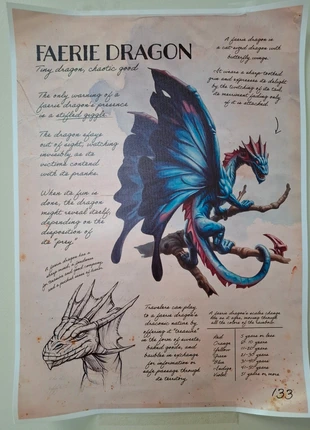 FAERIE DRAGON
Tiny dragon, chaotic good
The only warning of a
faerie dragon's presence
is a stifled giggle.
The dragon stays
out of sight, watching
invisibly as its
victims contend
with its pranks.
When its fun is
done, the dragon
might reveal itself,
depending on the
disposition of
its "prey."
A faerie dragon is a
cat-sized dragon with
butterfly wings.
It wears a sharp-toothed
grin and expresses its delight
by the twitching of its tail,
its merriment fading only
if it is attacked.
A faerie dragon has a
sharp mind, a fondness
for treasure and good company,
and a puckish sense of humor.
Travelers can play
to a faerie dragon's
draconic nature by
offering it "treasure"
in the form of sweets,
baked goods, and
baubles in exchange
for information or
safe passage through
its territory.
A faerie dragon's scales change
hue as it ages, moving through
all the colors of the rainbow.
Red 5 years or less
Orange 6-10 years
Yellow 11-20 years
Green 21-30 years
Blue 31-40 years
Indigo 41-50 years
Violet 51 years or more
133